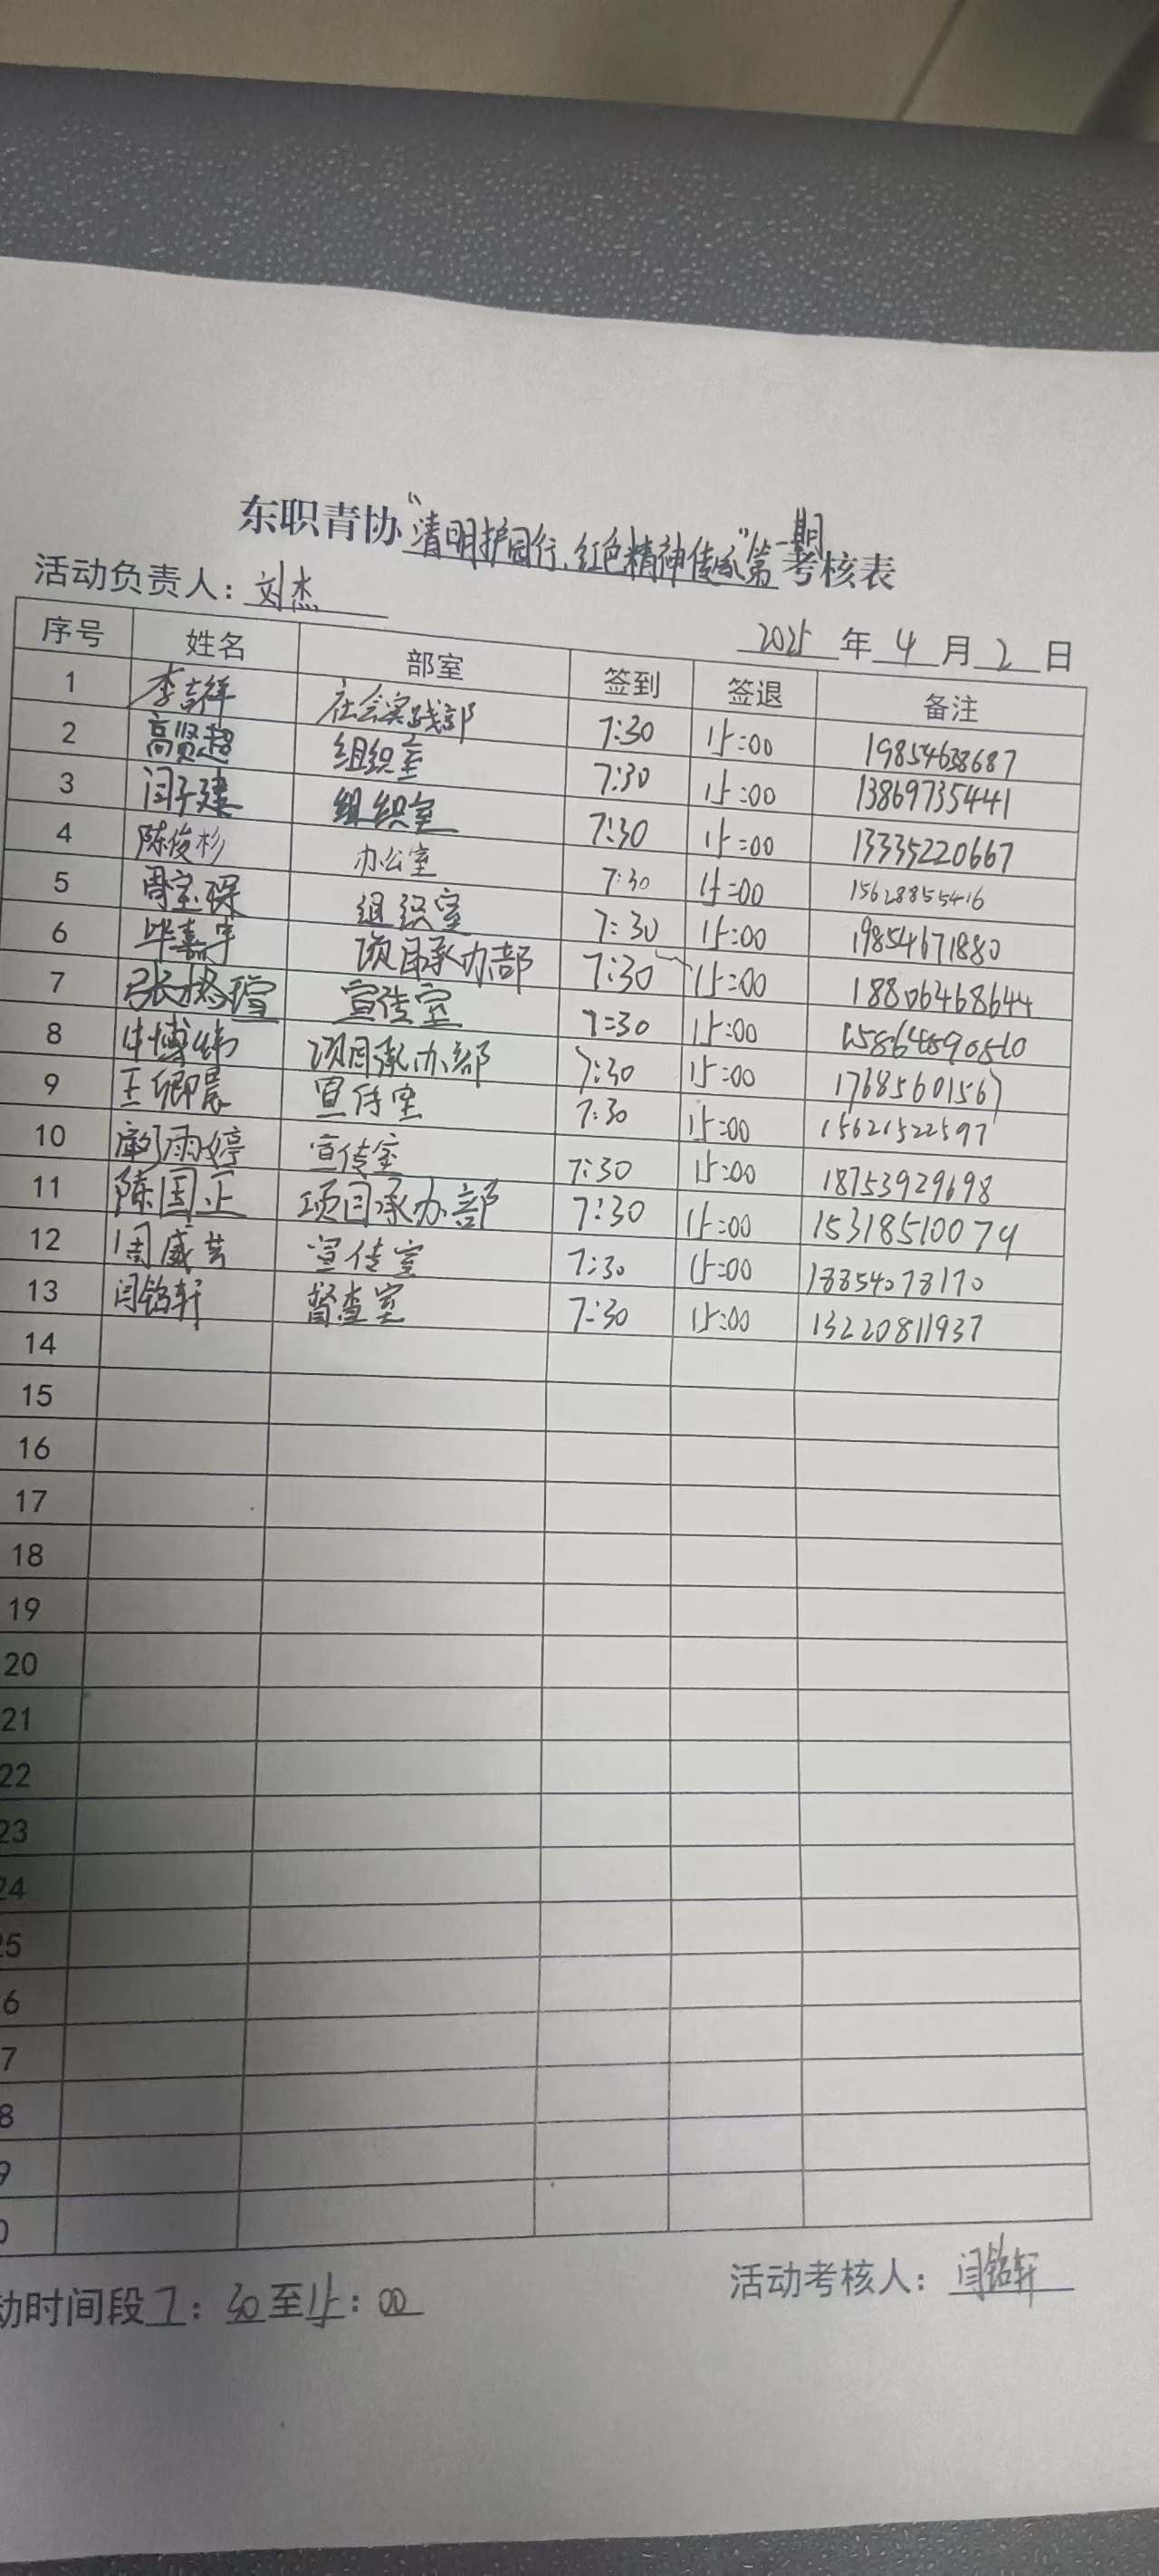 东职青协“清明护园行、红色精神传承”第一期考核表
活动负责人：刘杰
2025 年 4 月 2 日
序号 姓名 部室 签到 签退 备注
1 李吉祥 社会实践部 7:30 15:00 19854638687
2 高贤超 组织室 7:30 15:00 13869735441
3 闫子建 组织室 7:30 15:00 13335220667
4 陈俊杉 办公室 7:30 15:00 15628855416
5 周宝琛 组织室 7:30 15:00 19854671880
6 毕嘉宇 项目承办部 7:30 15:00 18806468644
7 张 宣传室 7:30 15:00 15864890510
8 博 项目承办部 7:30 15:00 17685601567
9 王卿晨 宣传室 7:30 15:00 15621522597
10 雨婷 宣传室 7:30 15:00 18753929698
11 陈国正 项目承办部 7:30 15:00 15318510079
12 周盛 宣传室 7:30 15:00 18854078170
13 闫铭轩 督查室 7:30 15:00 13220811937
14
15
16
17
18
19
20
21
22
23
24
25
6
7
8
9
0
动时间段 7：30 至 15：00
活动考核人：闫铭轩